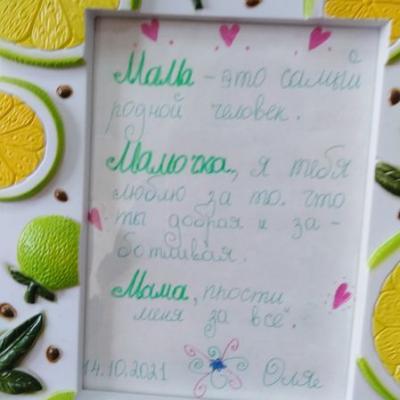 Мама - это самый
родной человек.
Мамочка, я тебя
люблю за то, что
ты добрая и за-
ботливая.
Мама, прости
меня за всё".
14.10.2021 Оля